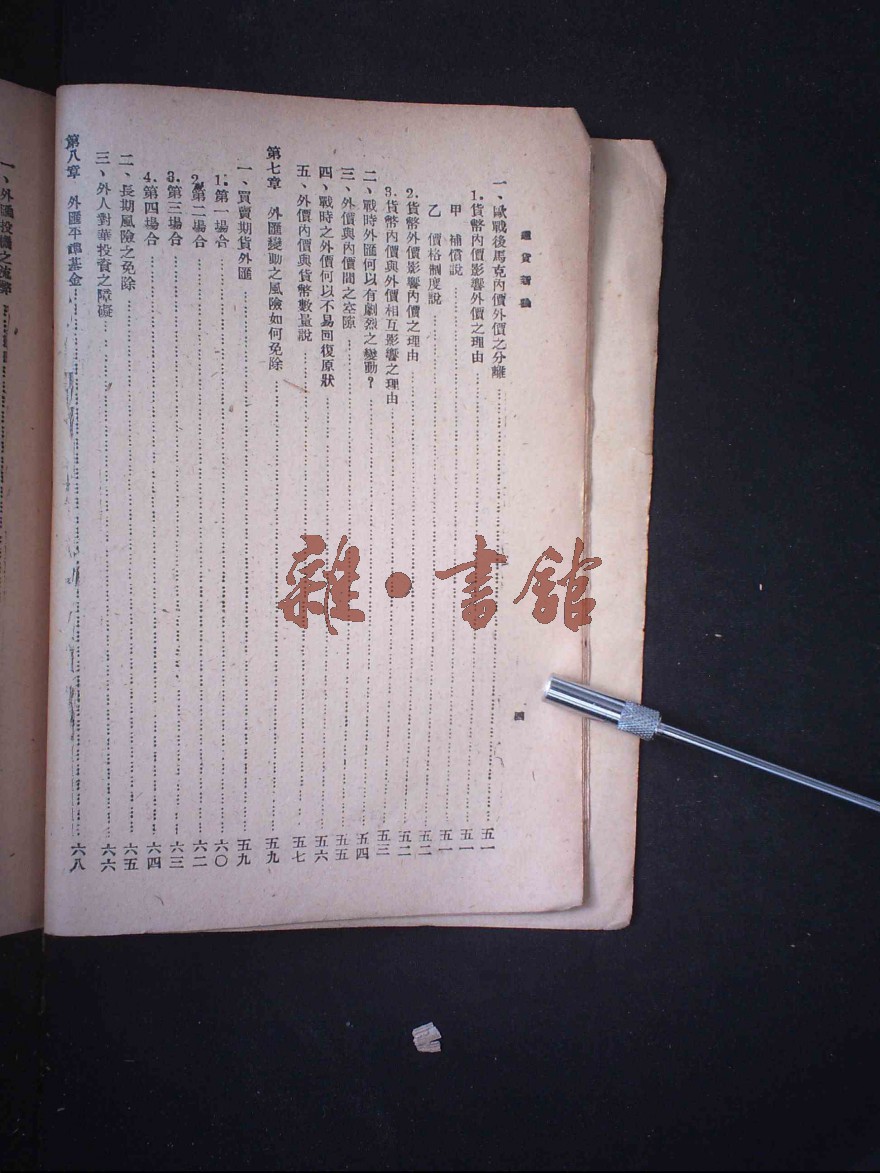 通貨新論
四
一、歐戰後馬克內價外價之分離……五一
1.貨幣內價影響外價之理由……五一
甲 補償說……五一
乙 價格制度說……五二
2.貨幣外價影響內價之理由……五二
3.貨幣內價與外價相互影響之理由……五三
二、戰時外匯何以有劇烈之變動?……五四
三、外價與內價間之空隙……五五
四、戰時之外價何以不易回復原狀……五六
五、外價內價與貨幣數量說……五七
第七章 外匯變動之風險如何免除……五九
一、買賣期貨外匯……五九
1.第一場合……六〇
2.第二場合……六二
3.第三場合……六三
4.第四場合……六四
二、長期風險之免除……六五
三、外人對華投資之障礙……六六
第八章 外匯平準基金……六八
一、外匯投機之
雜·書館